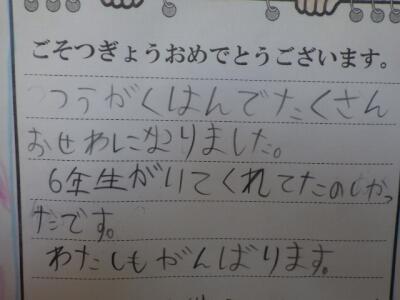 ごそつぎょうおめでとうございます。
つうがくはんでたくさん
おせわになりました。
6年生がいてくれてたのしかっ
たです。
わたしもがんばります。